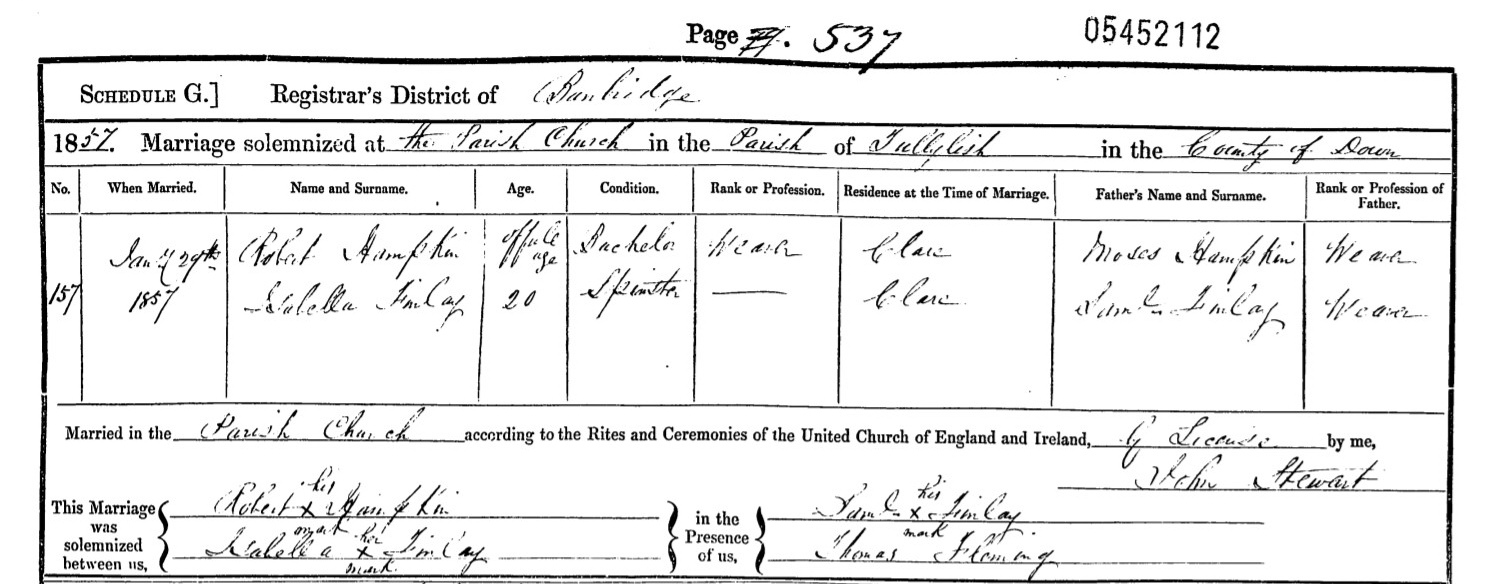 Page 77. 537 05452112
SCHEDULE G.] Registrar's District of Banbridge
1857. Marriage solemnized at the Parish Church in the Parish of Tullylish in the County of Down
No. When Married. Name and Surname. Age. Condition. Rank or Profession. Residence at the Time of Marriage. Father's Name and Surname. Rank or Profession of Father.
157 Jany 29th 1857 Robert Hampkin of full age Bachelor Weaver Clare Moses Hampkin Weaver
Isabella Finlay 20 Spinster Clare Saml Finlay Weaver
Married in the Parish Church according to the Rites and Ceremonies of the United Church of England and Ireland, by License by me,
John Stewart
This Marriage was solemnized between us, Robert his x mark Hampkin
Isabella her x mark Finlay
in the Presence of us, Saml his x mark Finlay
Thomas Fleming